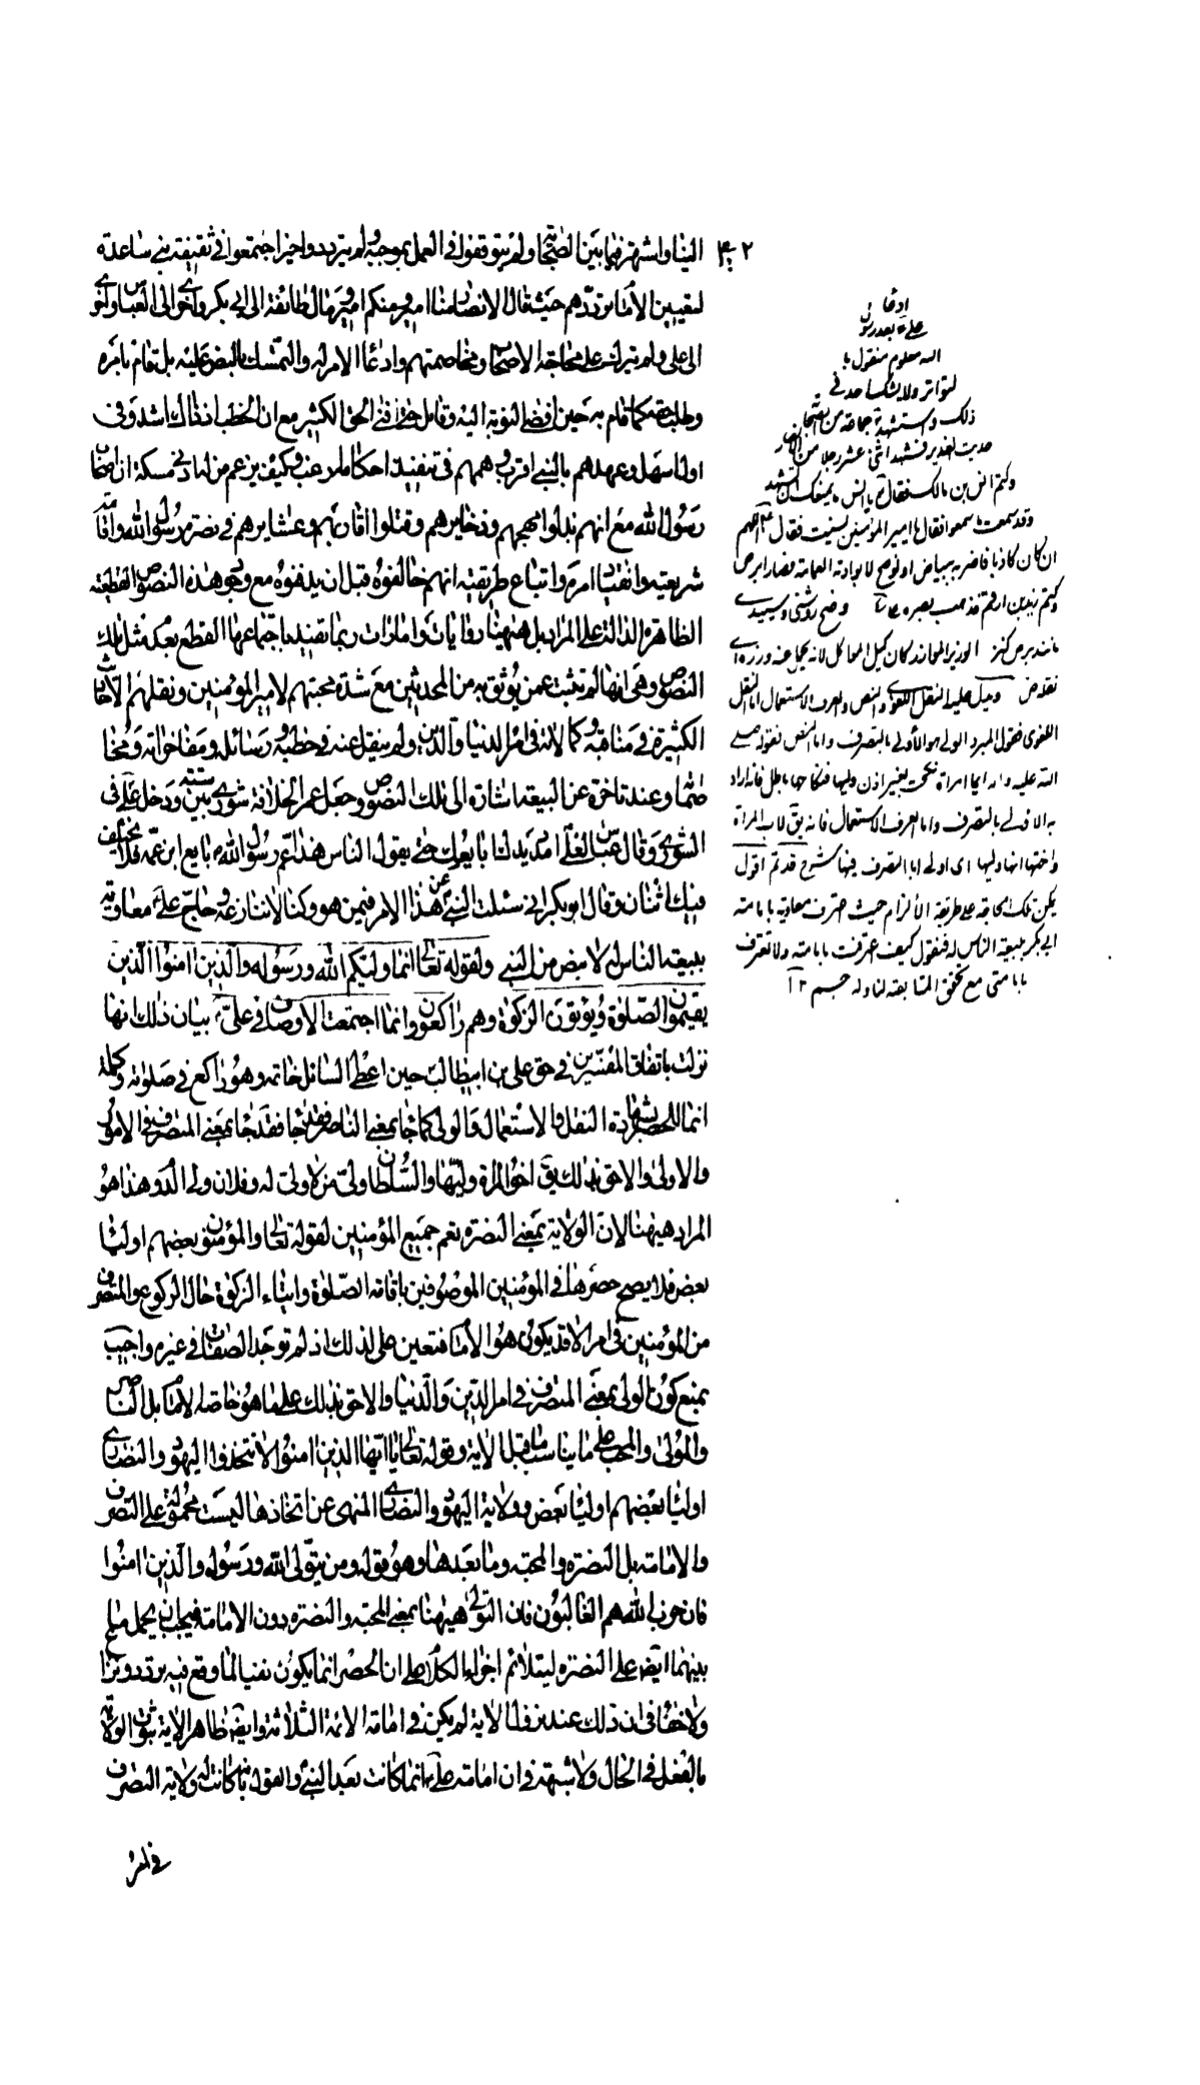 ٤٠٢
الينا واشتهر فيما بين الصحابة ولم يتوقفوا في العمل بموجبه ولم يترددوا حين اجتمعوا في ثقيفة بني ساعدة
لتعيين الامام ترددهم حيث قال الانصار منا امير ومنكم امير ومال طائفة الى ابي بكر واخرى الى العباس واخرى
الى على ولم يترك على محاجة الاصحاب ومخاصمتهم وادعاء الامر له والتمسك بالنص عليه بل قام بامره
وطلب حقه كما قام به حين افضى النوبة اليه وقاتل حتى افنى الخلق الكثير مع ان الخطب اذ ذاك اشد وفى
اول الامر اسهل وعهدهم بالنبي اقرب وهممهم في تنفيذ احكامه ارغب وكيف يزعم من له ادنى مسكة ان اصحاب
رسول الله مع انهم بذلوا مهجهم وذخايرهم وقتلوا اقاربهم وعشايرهم في نصرة رسول الله واقامة
شريعته وانقياد امره واتباع طريقته انهم خالفوه قبل ان يدفنوه مع وجود هذه النصوص القطعية
الظاهرة الدالة على المراد بل ههنا روايات وامارات ربما تفيد باجتماعها القطع بعدم مثل تلك
النصوص وهى انها لم تثبت عمن يوثق به من المحدثين مع شدة محبتهم لامير المؤمنين ونقلهم الاحاديث
الكثيرة في مناقبه وكمالاته في امر الدنيا والدين ولم ينقل عنه في خطبه ورسائله ومفاخراته ومخا
صماته وعند تاخره عن البيعة اشارة الى تلك النصوص وجعل عمر الخلافة شورى بين ستة ودخل على في
الشورى وقال عباس لعلي امدد يدك ابايعك حتى يقول الناس هذا عم رسول الله بايع ابن عمه فلا يختلف
فيك اثنان وقال ابو بكر ليتني سئلت النبي عن هذا الامر فيمن هو وكنا لا ننازعه وحاج على معاوية
ببيعة الناس له لا بنص من النبي ولقوله تعالى انما وليكم الله ورسوله والذين امنوا الذين
يقيمون الصلوة ويؤتون الزكوة وهم راكعون وانما اجتمعت الاوصاف في علي بيان ذلك انها
نزلت باتفاق المفسرين في حق على بن ابيطالب حين اعطى السائل خاتمه وهو راكع في صلوته وكلمة
انما للحصر بشهادة النقل والاستعمال والولى كما جاء بمعنى الناصر فقد جاء بمعنى المتصرف في الامور
والاولى والاحق بذلك يق اخو المراة وليها والسلطان ولي من لا ولي له وفلان ولي الدم وهذا هو
المراد ههنا لان الولاية بمعنى النصرة تعم جميع المؤمنين لقوله تعالى والمؤمنون بعضهم اولياء
بعض فلا يصح حصرها في المؤمنين الموصوفين باقامة الصلوة وايتاء الزكوة حال الركوع والمتصرف
من المؤمنين في امر الامة يكون هو الامام فتعين على لذلك اذ لم توجد الصفات في غيره واجيب
بمنع كون الولى بمعنى المتصرف في امر الدين والدنيا والاحق بذلك على ما هو خاصة الامام بل الناصر
والمولى والمحب على ما يناسب ما قبل الاية وهو قوله تعالى يا ايها الذين امنوا لا تتخذوا اليهود والنصارى
اولياء بعضهم اولياء بعض وولاية اليهود والنصارى المنهى عن اتخاذها ليست محمولة على التصرف
والامامة بل النصرة والمحبة وما بعدها وهو قوله ومن يتولى الله ورسوله والذين امنوا
فان حزب الله هم الغالبون فان التولى ههنا بمعنى المحبة والنصرة دون الامامة فيجب ان يحمل ما
بينهما ايضا على النصرة ليتلائم اجزاء الكلام على ان الحصر انما يكون نفيا لما وقع فيه تردد ونزاع
ولا خفاء في ان ذلك عند نزول الاية لم يكن في امامة الائمة الثلاثة وايضا ظاهر الاية ثبوت الولاية
بالفعل في الحال ولا شبهة في ان امامة على انما كانت بعد النبي والقول بانه كانت له ولاية التصرف
في امر
ادعاء
على بعد رسول
الله معلوم منقول با
لتواتر ولا يشك احد في
ذلك واستشهد جماعة من الصحابة
حديث الغدير فشهد اثنى عشر رجلا من الانصار
وكتم انس بن مالك فقال يا انس ما يمنعك ان تشهد
وقد سمعت ما سمعوا فقال يا امير المؤمنين نسيت فقال اللهم
ان كان كاذبا فاضربه ببياض او بوضح لا يواريه العمامة فصار ابرص
وكتم زيد بن ارقم فذهب بصره وضح روشنى وسپيدى
مانند برص كنز الوزير الموازر لانه يحمل عنه وزره اى
ثقله ص ويدل عليه النقل اللغوى والنص والعرف والاستعمال اما النقل
اللغوى فقول المبرد الولى هو الاولى بالتصرف واما النص فقوله صلى
الله عليه واله ايما امراة نكحت بغير اذن وليها فنكاحها باطل فانه اراد
به الاولى بالتصرف واما العرف والاستعمال فانه يق لاب المراة
واخيها انه وليها اى اولى بالتصرف فيها شرح قديم اقول
يكن تلك المحاجة على طريقة الالزام حيث اعترف معاوية بامامة
ابي بكر ببيعة الناس له فنقول كيف اعترفت بامامته ولا تعترف
بامامتى مع تحقق المتابعة لنا وله